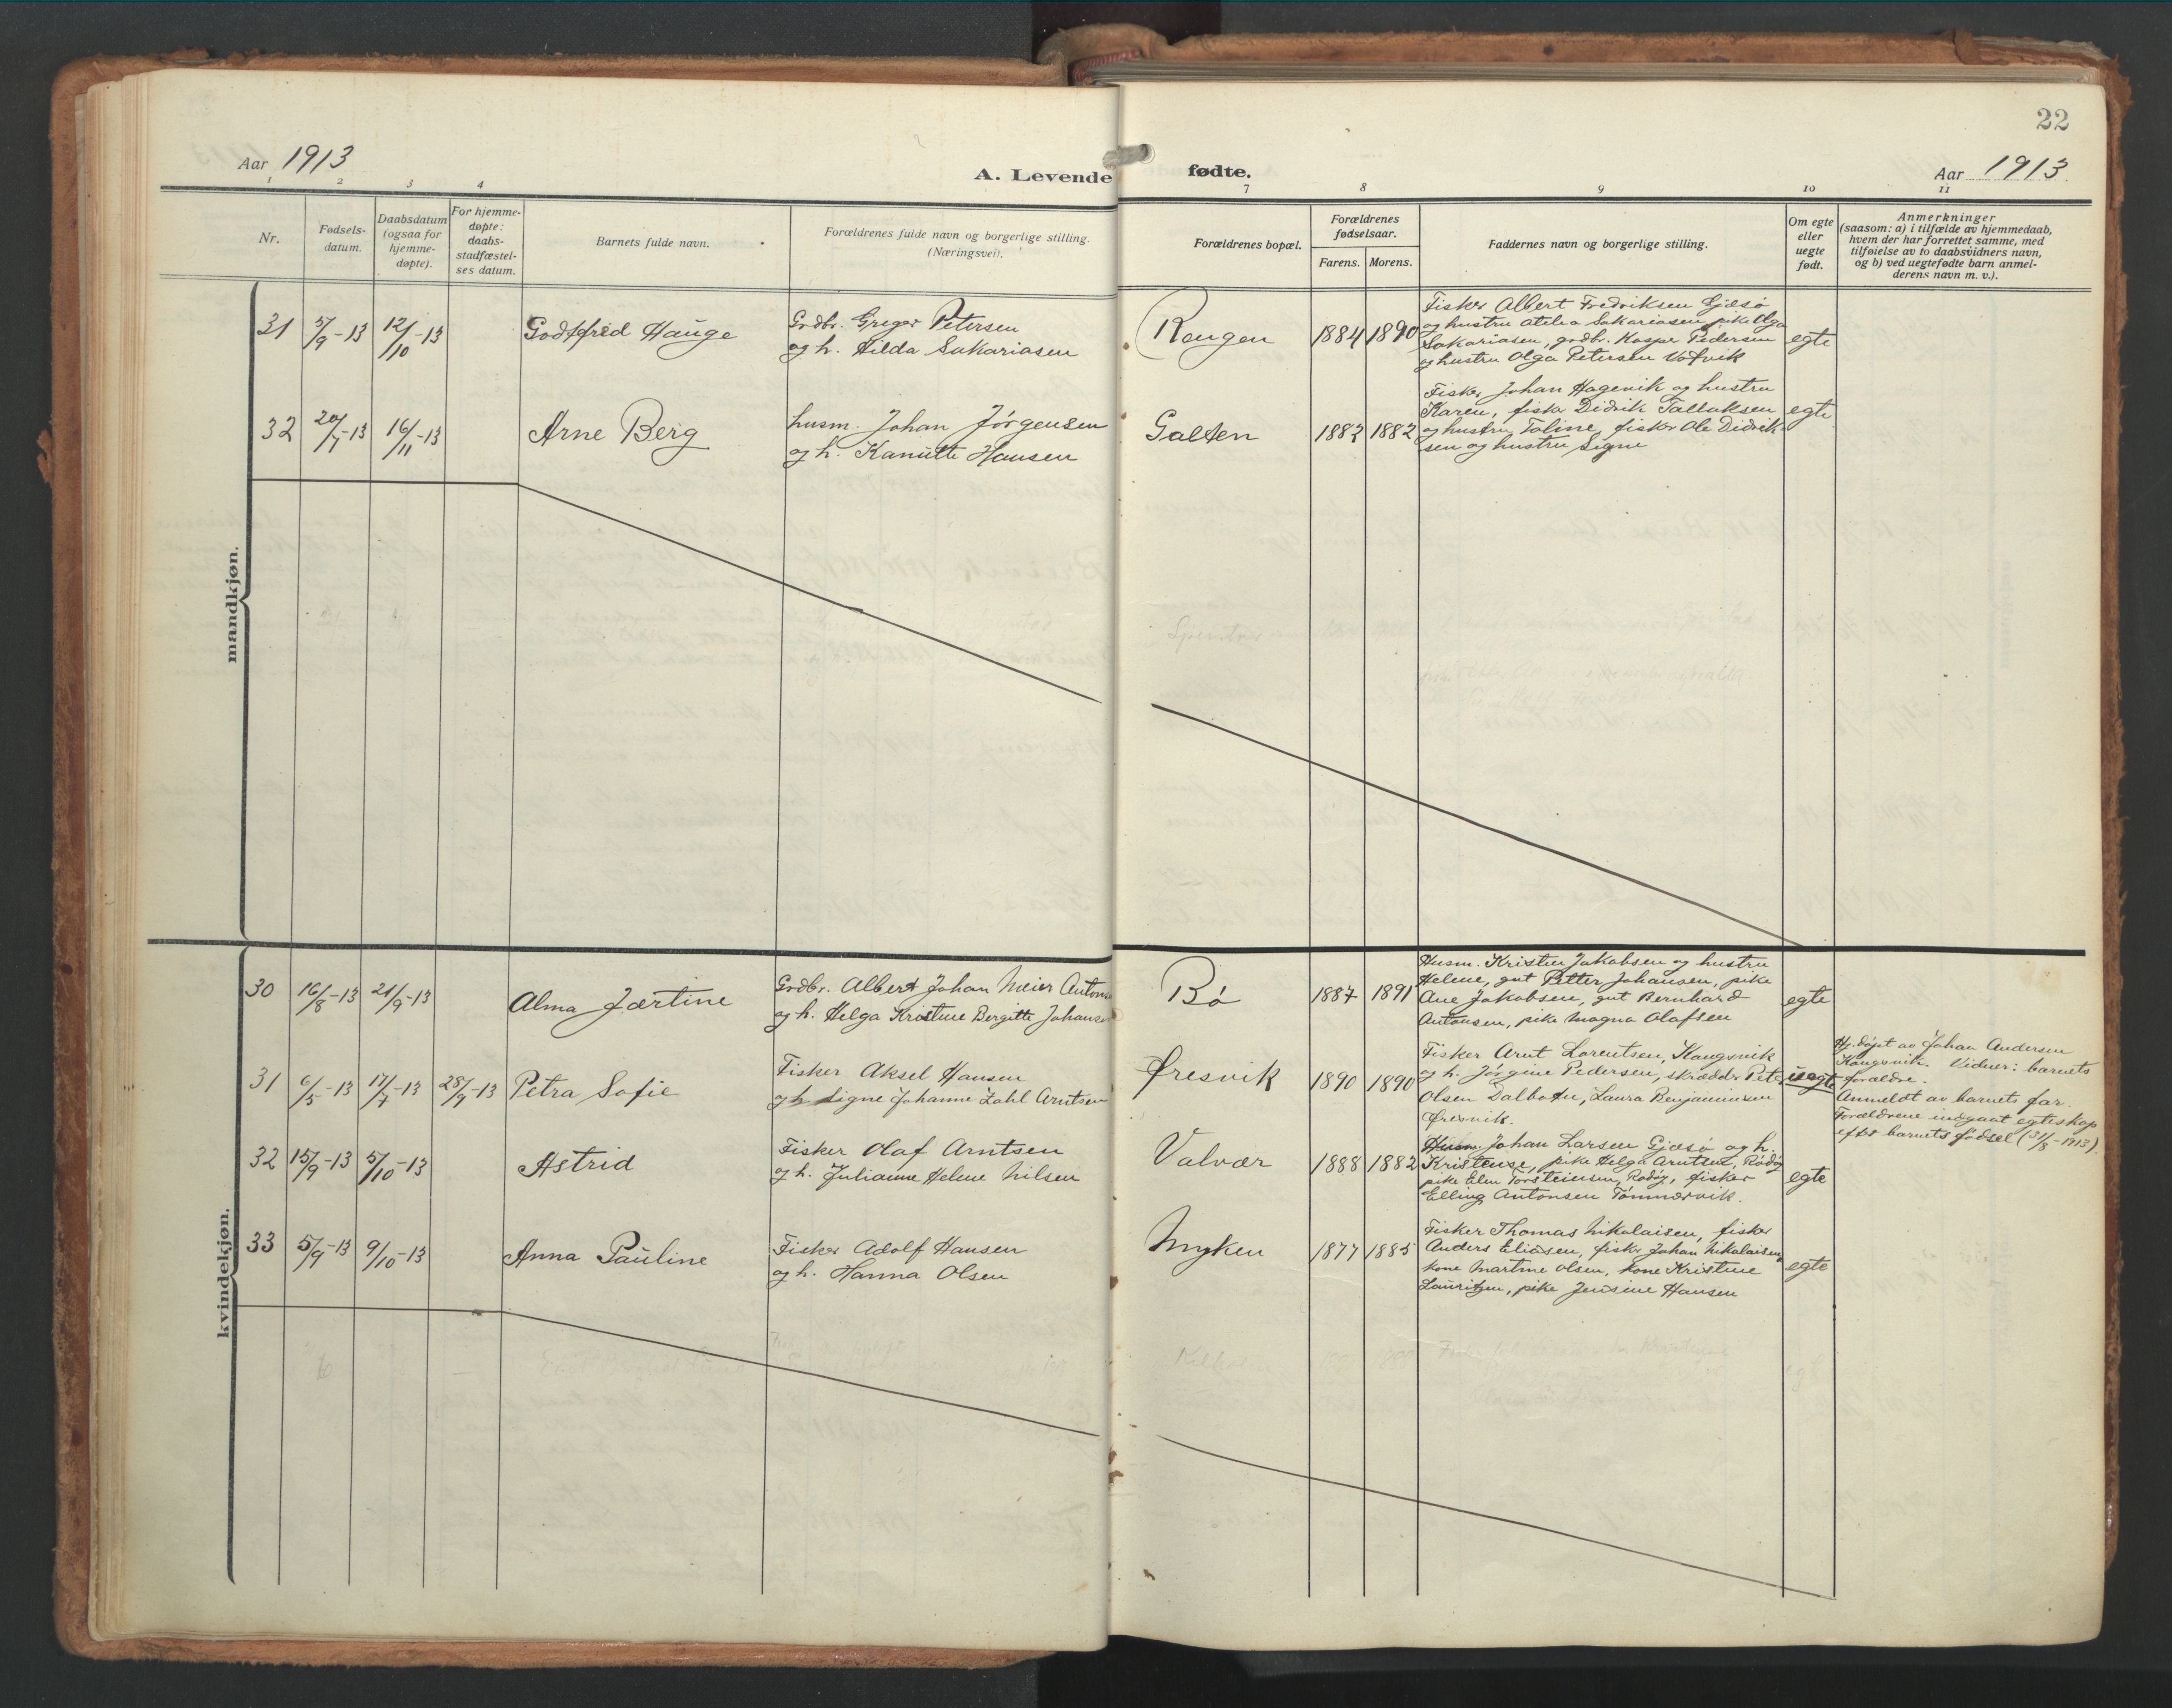 22
Aar 1913
A. Levende fødte.
Aar 1913
1 2 3 4 7 8 9 10 11
Nr.
Fødsels-
datum.
Daabsdatum
(ogsaa for
hjemme-
døpte).
For hjemme-
døpte:
daabs-
stadfæstel-
ses datum.
Barnets fulde navn.
Forældrenes fulde navn og borgerlige stilling.
(Næringsvei).
Forældrenes bopæl.
Forældrenes
fødselsaar.
Farens. Morens.
Faddernes navn og borgerlige stilling.
Om egte
eller
uegte
født.
Anmerkninger
(saasom: a) i tilfælde av hjemmedaab,
hvem der har forrettet samme, med
tilføielse av to daabsvidners navn,
og b) ved uegtefødte barn anmel-
derens navn m. v.).
mandkjøn.
31 5/9-13 12/10-13 Godtfred Hauge
Grdbr. Greger Petersen
og h. Hilda Sakariasen
Rengen 1884 1890
Fisker Albert Fredriksen Gjæsø
og hustru Atelia Sakariasen, pike Olga
Sakariasen, grdbr. Kasper Pedersen
og hustru Olga Petersen
egte
32 20/7-13 16/11-13 Arne Berg
husm. Johan Jørgensen
og h. Kanutte Hansen
Galten 1883 1882
Fisker Johan Hagenik og hustru
Karen, fisker Didrik Tallaksen
og hustru Toline, fisker Ole Didrik-
sen og hustru Signe
egte
kvindekjøn.
30 16/8-13 21/9-13 Alma Jærtine
Grdbr. Albert Johan Meier Antons
og h. Helga Kristine Bergitte Johansen
Bø 1887 1891
Husm. Kristen Jakobsen og hustru
Helene, gut Petter Johansen, pike
Ane Jakobsen, gut Bernhard
Antonsen, pike Magna Olafsen
egte
31 6/5-13 17/7-13 28/9-13 Petra Sofie
Fisker Aksel Hansen
og h. Signe Johanne Zahl Arntsen
Øresvik 1890 1890
Fisker Arnt Lorentsen, Kangsvik
og h. Jørgine Pedersen, skrædder Peter
Olsen Dalbotn, Laura Benjaminsen
Øresvik.
uegte
Hj.døpt av Johan Andersen
Kangsvik. Vidner: barnets
forældre.
Anmeldt av barnets far.
Forældrene indgaat egteskap
efter barnets fødsel (31/8-1913).
32 15/9-13 5/10-13 Astrid
Fisker Olaf Arntsen
og h. Julianne Helene Nilsen
Valvær 1888 1882
Husm. Johan Larsen Gjæsø og h.
Kristense, pike Helga Arntsen, Rødø
pike Elen Torsteinsen, Rødøy, fisker
Elling Antonsen Tømmervik.
egte
33 5/9-13 9/10-13 Anna Pauline
Fisker Adolf Hansen
og h. Hanna Olsen
Myken 1877 1885
Fisker Thomas Nikolaisen, fisker
Anders Eliasen, fisker Johan Nikolaisen,
kone Martine Olsen, kone Kristine
Lauritzen, pike Jensine Hansen
egte